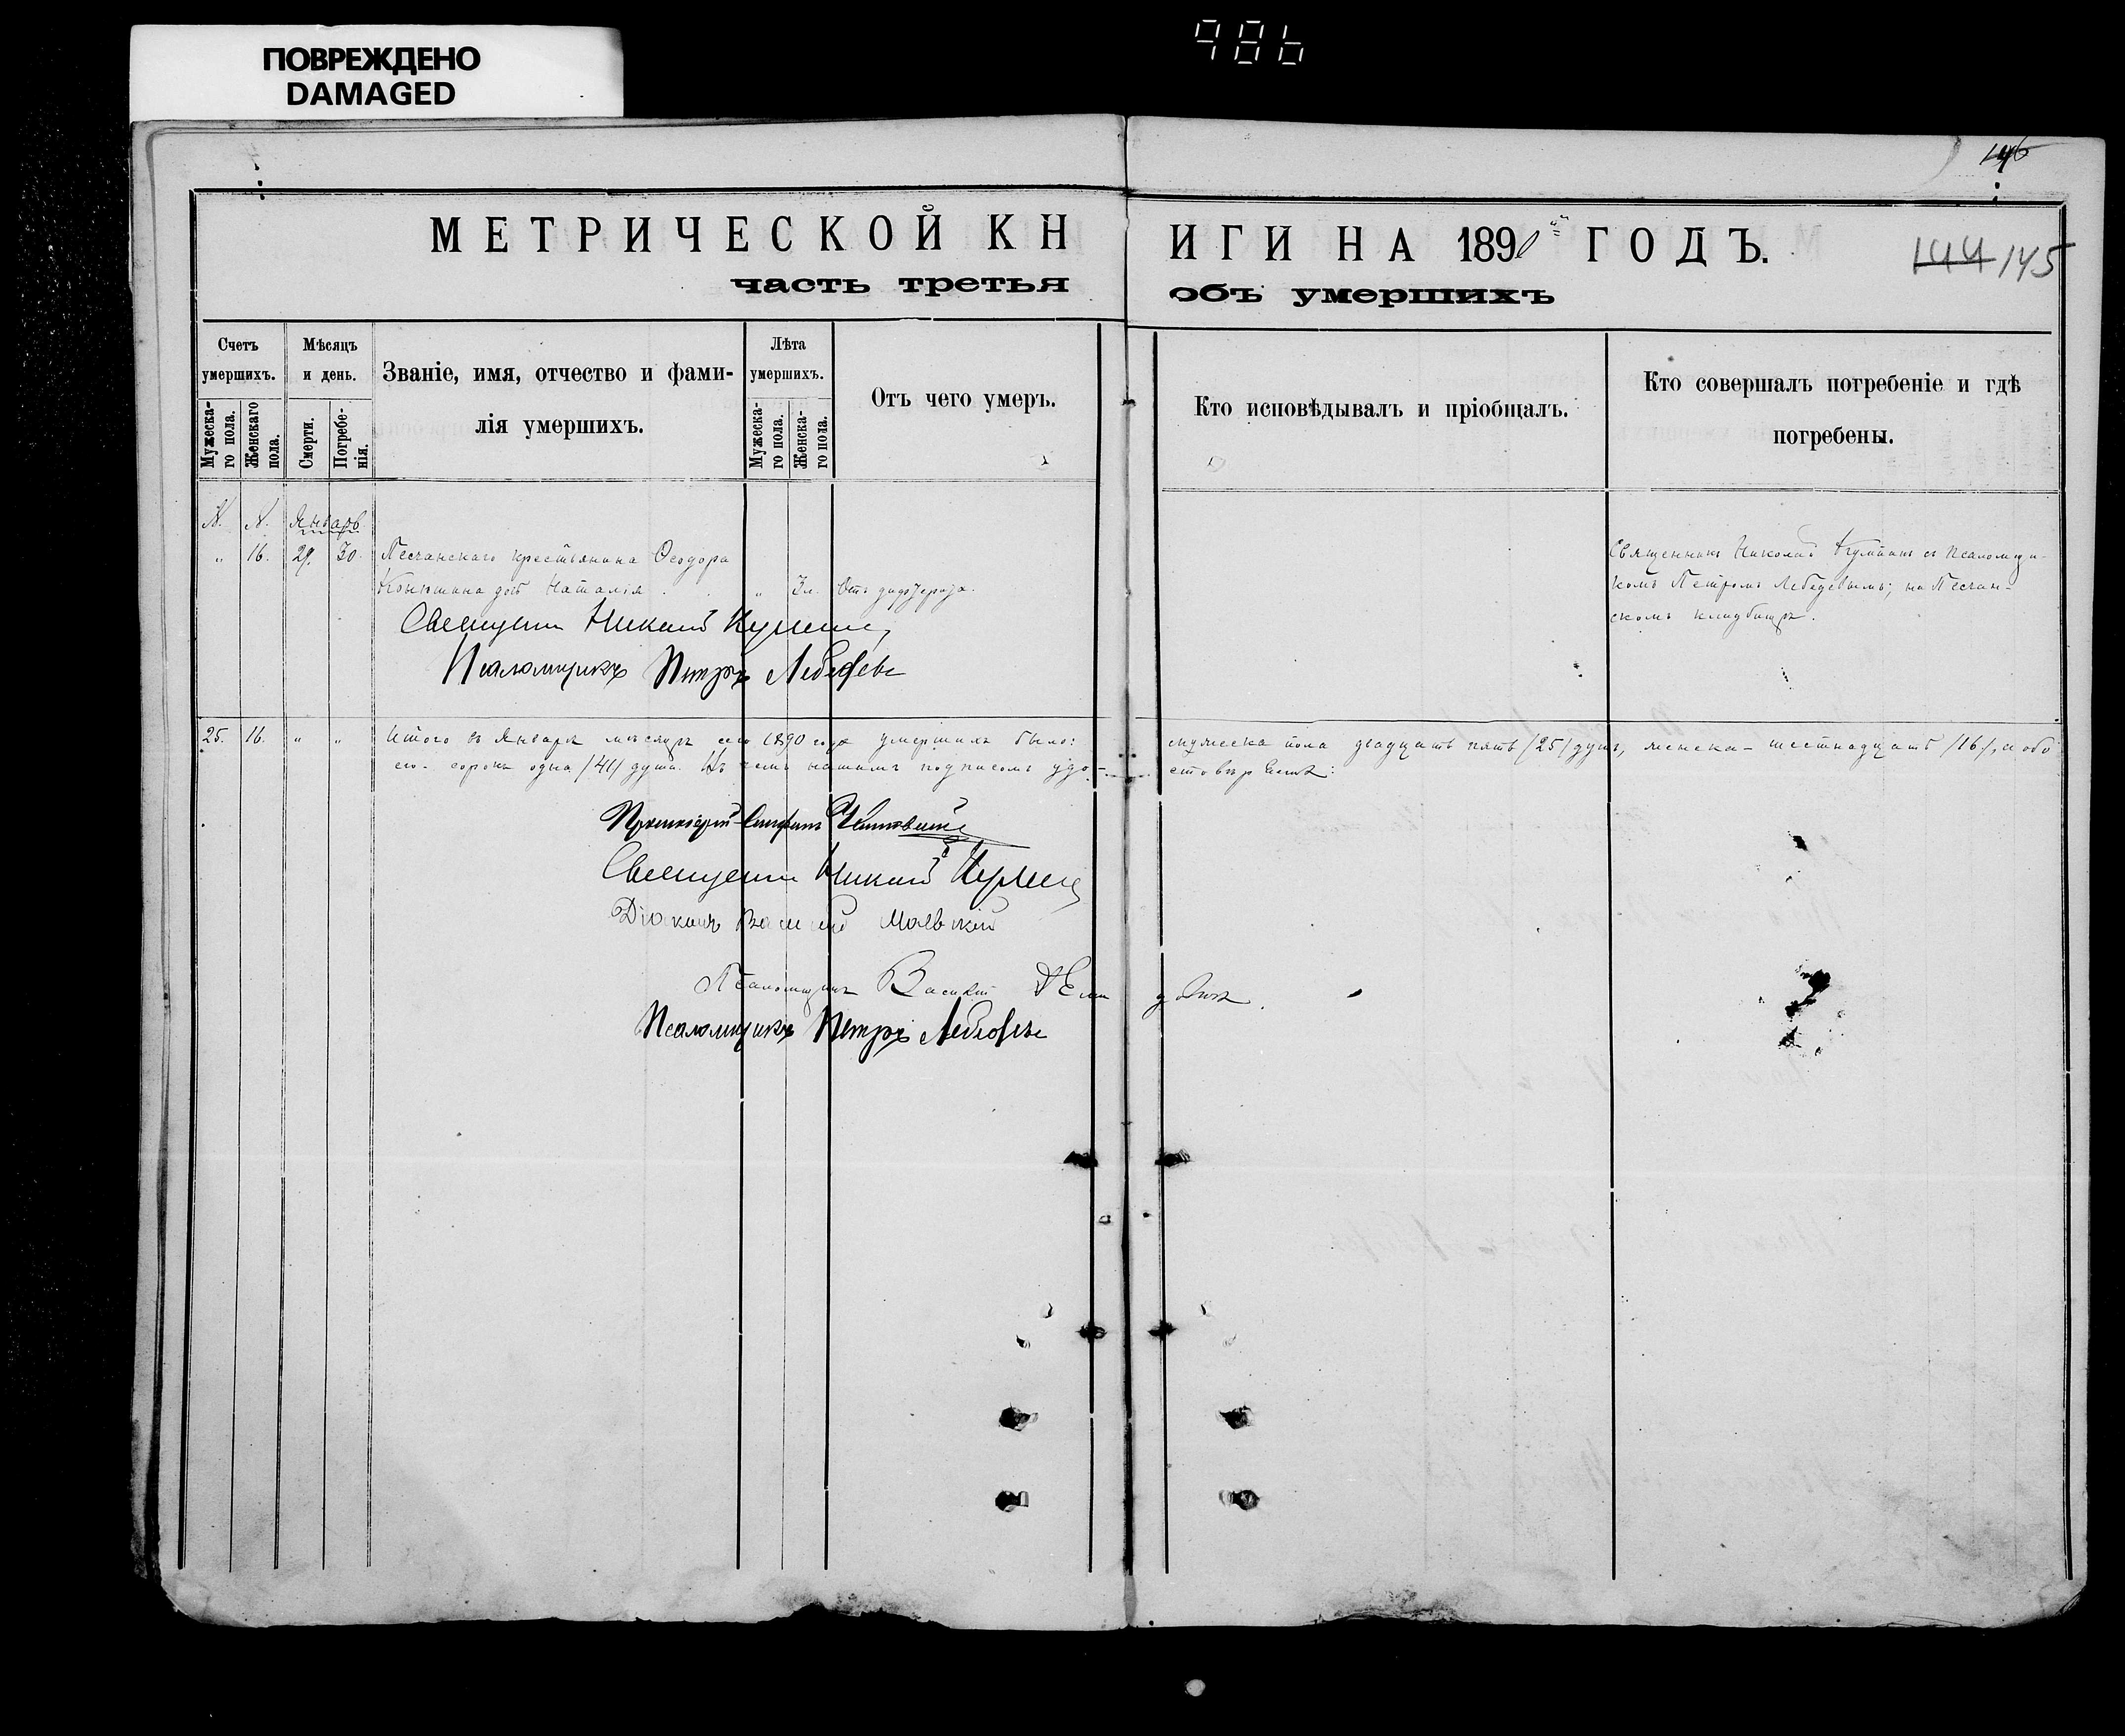 ПОВРЕЖДЕНО
DAMAGED
986
146
МЕТРИЧЕСКОЙ КНИГИ НА 1890 ГОДЪ.
144 145
часть третья объ умершихъ
Счетъ умершихъ.
Мужеска-го пола.
Женскаго пола.
Мѣсяцъ и день.
Смерти.
Погребе-нія.
Званіе, имя, отчество и фами-
лія умершихъ.
Лѣта умершихъ.
Мужеска-го пола.
Женска-го пола.
Отъ чего умеръ.
Кто исповѣдывалъ и пріобщалъ.
Кто совершалъ погребеніе и гдѣ
погребены.
N. N. Январь
„ 16. 29. 30. Песчанскаго крестьянина Ѳеодора
дочь Наталія „ 3 л. Отъ
Священникъ Николай съ Псаломщи-
комъ Петромъ Лебедевымъ; на Песчан-
скомъ кладбищѣ.
Священникъ Николай
Псаломщикъ Петръ Лебедевъ
25. 16. „ „ Итого въ Январѣ мѣсяцѣ сего 1890 года умершихъ было: мужеска пола двадцать пять /25/ душъ, женска - шестнадцать /16/, а обо
его - сорокъ одна /41/ душа. Въ чемъ нашимъ подписомъ удо- стовѣряемъ:
Протоіерей
Священникъ Николай
Діаконъ Василій
Псаломщикъ Василій
Псаломщикъ Петръ Лебедевъ